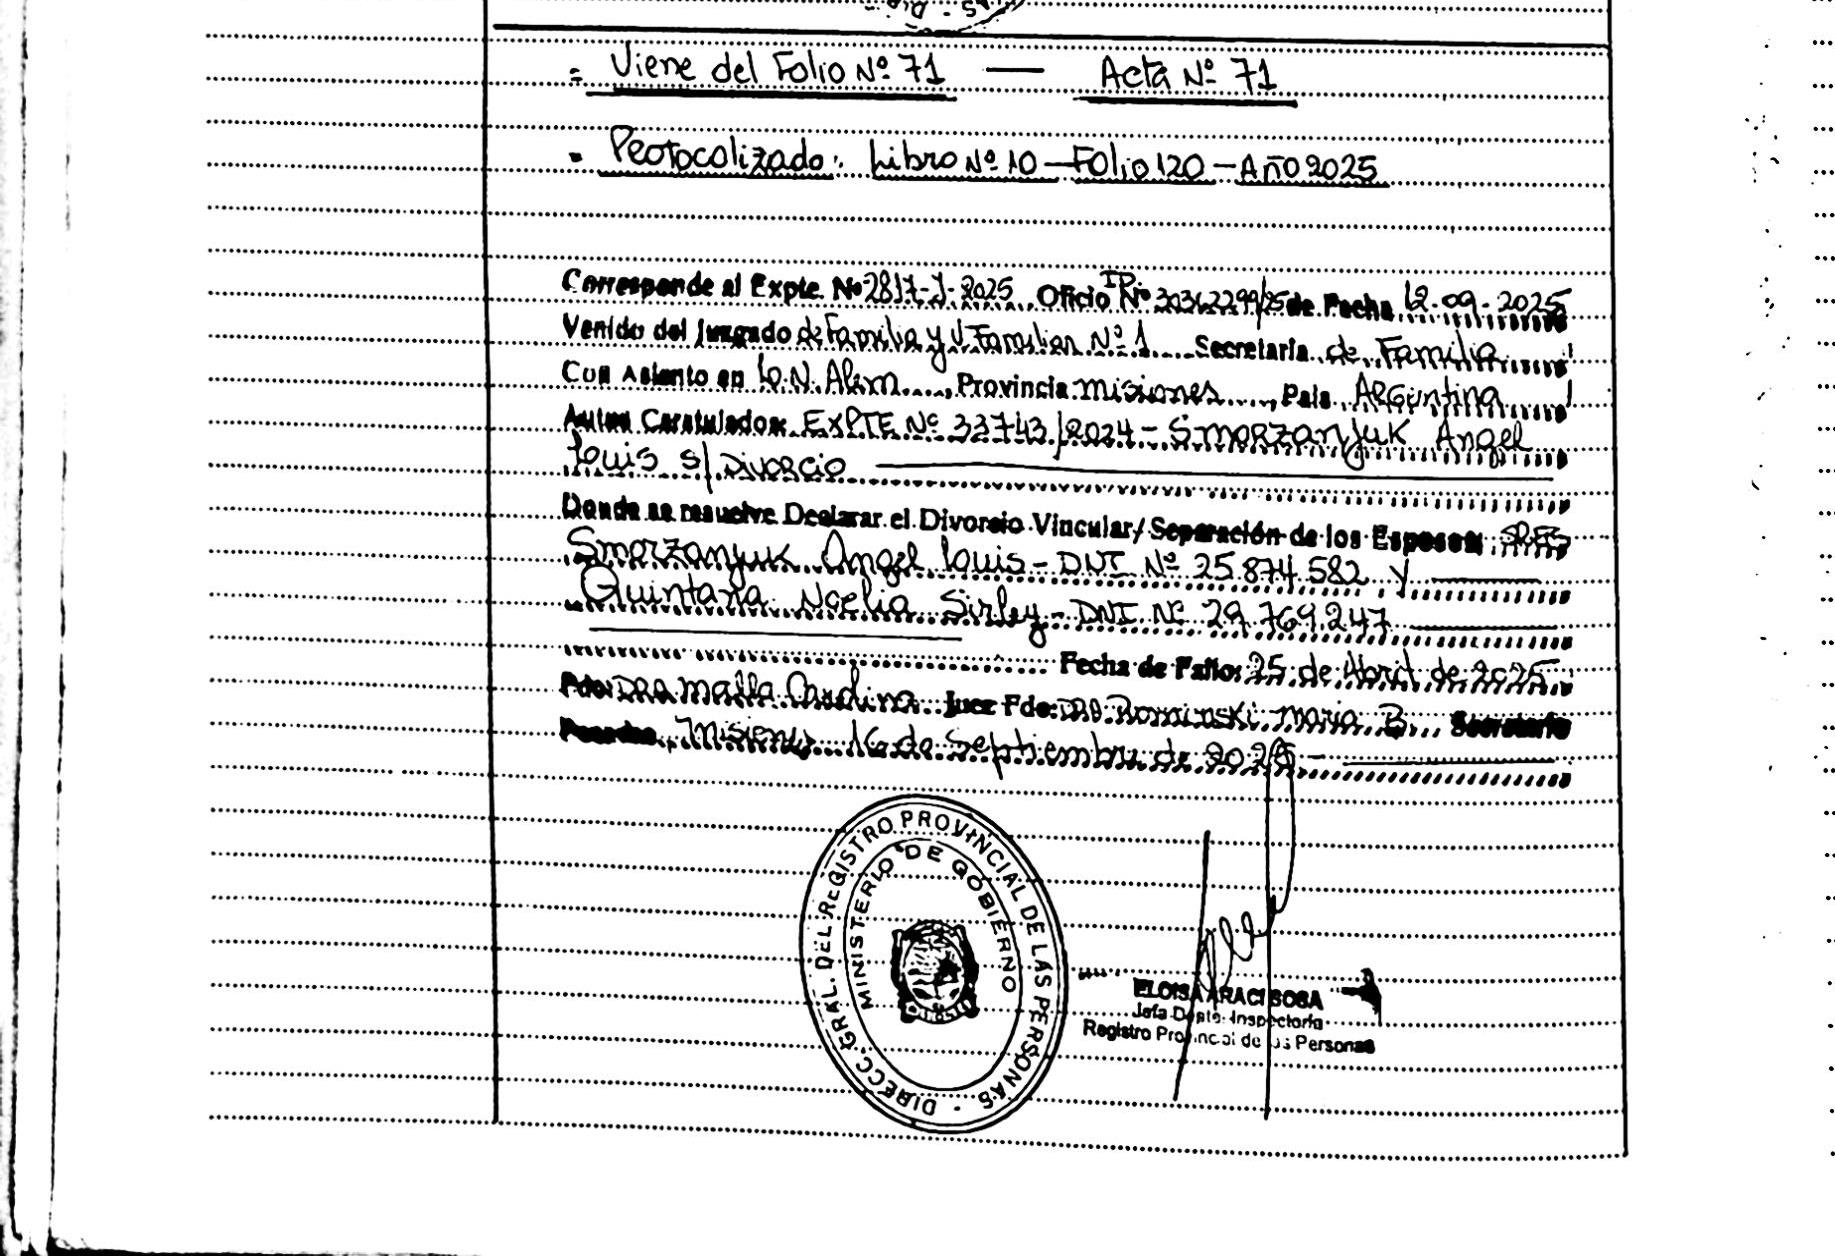 = Viene del Folio Nº 71 — Acta Nº 71
= Protocolizado: Libro Nº 10 — Folio 120 — Año 2025
Corresponde al Expte. Nº 2817-J-2025 Oficio ID Nº 30362299/25 de Fecha 12-09-2025
Venido del Juzgado de Familia y V. Familiar Nº 1 Secretaria de Familia
Con Asiento en L.N. Alem, Provincia Misiones, Pais Argentina
Autos Caratulados: EXPTE Nº 33743/2024 - Smorzanjuk Angel
Louis s/ Divorcio
Donde se resuelve Declarar el Divorcio Vincular/ Separación de los Esposos: SRES
Smorzanjuk Angel Louis - DNI Nº 25.874.582 y
Quintana Noelia Sirley - DNI Nº 29.769.247
Fecha de Fallo: 25 de Abril de 2025
Fdo: DRA Carolina Juez Fdo: DRA Rominski Maria B. Secretario
Posadas, Misiones 16 de Septiembre de 2025 -
DIRECC. GRAL. DEL REGISTRO PROVINCIAL DE LAS PERSONAS -
MINISTERIO DE GOBIERNO
ELOISA ARACI SOSA
Jefa Dpto. Inspectoria
Registro Provincial de las Personas